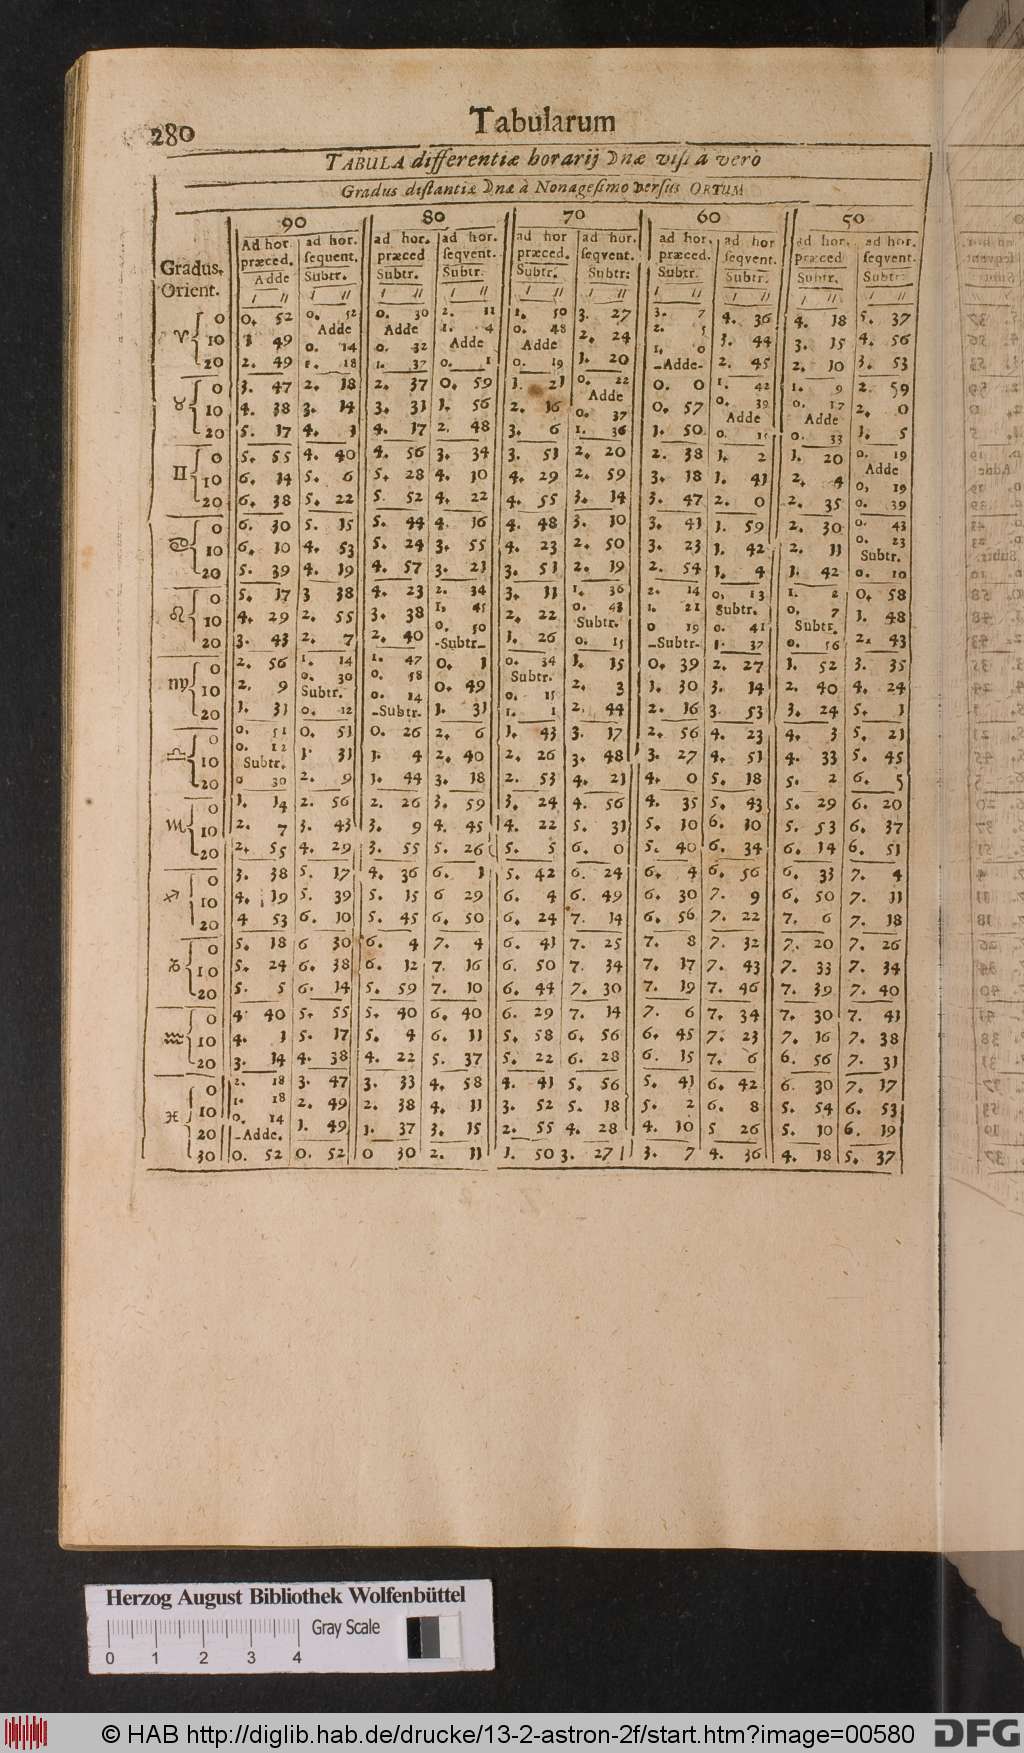 280
Tabularum
TABULA differentiæ horarij ☽næ visi a vero
Gradus distantiæ ☽næ à Nonagesimo versus ORTUM
90 80 70 60 50
Gradus. Orient.
Ad hor. præced. ad hor. sequent. ad hor. præced ad hor. seqvent. ad hor præced. ad hor. seqvent. ad hor. præced. ad hor seqvent. ad hor. præced ad hor. seqvent.
Adde Subtr. Subtr. Subtr. Subtr. Subtr: Subtr. Subtr. Subtr. Subtr.
♈ 0 0. 52 0. 52 0. 30 2. 11 1. 50 3. 27 3. 7 4. 36 4. 18 5. 37
Adde Adde
10 1 49 0. 14 0. 32 1. 4 0. 48 2. 24 2. 5 3. 44 3. 15 4. 56
Adde Adde
20 2. 49 1. 18 1. 37 0. 1 0. 19 1. 20 1. 0 2. 45 2. 10 3. 53
-Adde-
♉ 0 3. 47 2. 18 2. 37 0. 59 1. 21 0. 22 0. 0 1. 42 1. 9 2. 59
Adde
10 4. 38 3. 14 3. 31 1. 56 2. 16 0. 37 0. 57 0. 39 0. 17 2. 0
Adde Adde
20 5. 17 4. 1 4. 17 2. 48 3. 6 1. 36 1. 50 0. 0. 33 1. 5
♊ 0 5. 55 4. 40 4. 56 3. 34 3. 51 2. 20 2. 38 1. 2 1. 20 0. 19
Adde
10 6. 14 5. 6 5. 28 4. 10 4. 29 2. 59 3. 18 1. 41 2. 4 0. 19
20 6. 38 5. 22 5. 52 4. 22 4. 55 3. 14 3. 47 2. 0 2. 35 0. 39
♋ 0 6. 30 5. 15 5. 44 4. 16 4. 48 3. 10 3. 41 1. 59 2. 30 0. 43
10 6. 10 4. 53 5. 24 3. 55 4. 23 2. 50 3. 23 1. 42 2. 11 0. 23
Subtr.
20 5. 39 4. 19 4. 57 3. 21 3. 51 2. 19 2. 54 1. 4 1. 42 0. 10
♌ 0 5. 17 3 38 4. 23 2. 34 3. 11 1. 36 2. 14 0. 13 1. 2 0. 58
Subtr.
10 4. 29 2. 55 3. 38 1. 45 2. 22 0. 43 1. 21 0. 41 0. 7 1. 48
Subtr. Subtr.
20 3. 43 2. 7 2. 40 0. 50 1. 26 0. 15 0 19 1. 37 0. 56 2. 43
-Subtr- -Subtr-
♍ 0 2. 56 1. 14 1. 47 0. 1 0. 34 1. 15 0. 39 2. 27 1. 52 3. 35
0. 30 0. 58 Subtr.
10 2. 9 Subtr. 0. 14 0. 49 0. 15 2. 3 1. 30 3. 14 2. 40 4. 24
20 1. 31 0. 12 -Subtr- 1. 31 1. 1 2. 44 2. 16 3. 53 3. 24 5. 1
♎ 0 0. 51 0. 51 0. 26 2. 6 1. 43 3. 17 2. 56 4. 23 4. 3 5. 21
0. 12
10 Subtr. 1. 31 1. 4 2. 40 2. 26 3. 48 3. 27 4. 51 4. 33 5. 45
20 0 30 2. 9 1. 44 3. 18 2. 53 4. 21 4. 0 5. 18 5. 2 6. 5
♏ 0 1. 14 2. 56 2. 26 3. 59 3. 24 4. 56 4. 35 5. 43 5. 29 6. 20
10 2. 7 3. 43 3. 9 4. 45 4. 22 5. 31 5. 10 6. 10 5. 53 6. 37
20 2. 55 4. 29 3. 55 5. 26 5. 5 6. 0 5. 40 6. 34 6. 14 6. 51
♐ 0 3. 38 5. 17 4. 36 6. 1 5. 42 6. 24 6. 4 6. 56 6. 33 7. 4
10 4. 19 5. 39 5. 15 6 29 6. 4 6. 49 6. 30 7. 9 6. 50 7. 11
20 4 53 6. 10 5. 45 6. 50 6. 24 7. 14 6. 56 7. 22 7. 6 7. 18
♑ 0 5. 18 6 30 6. 4 7. 4 6. 41 7. 25 7. 8 7. 32 7. 20 7. 26
10 5. 24 6. 38 6. 12 7. 16 6. 50 7. 34 7. 17 7. 43 7. 33 7. 34
20 5. 5 6. 14 5. 59 7. 10 6. 44 7. 30 7. 19 7. 46 7. 39 7. 40
♒ 0 4. 40 5. 55 5. 40 6. 40 6. 29 7. 14 7. 6 7. 34 7. 30 7. 41
10 4. 1 5. 17 5. 4 6. 11 5. 58 6. 56 6. 45 7. 23 7. 16 7. 38
20 3. 14 4. 38 4. 22 5. 37 5. 22 6. 28 6. 15 7. 6 6. 56 7. 31
♓ 0 2. 18 3. 47 3. 33 4. 58 4. 41 5. 56 5. 41 6. 42 6. 30 7. 17
10 1. 18 2. 49 2. 38 4. 11 3. 52 5. 18 5. 2 6. 8 5. 54 6. 53
20 0. 14 1. 49 1. 37 3. 15 2. 55 4. 28 4. 10 5 26 5. 10 6. 19
-Adde.
30 0. 52 0. 52 0 30 2. 11 1. 50 3. 27 3. 7 4. 36 4. 18 5. 37
Herzog August Bibliothek Wolfenbüttel
Gray Scale
0 1 2 3 4
© HAB http://diglib.hab.de/drucke/13-2-astron-2f/start.htm?image=00580
DFG